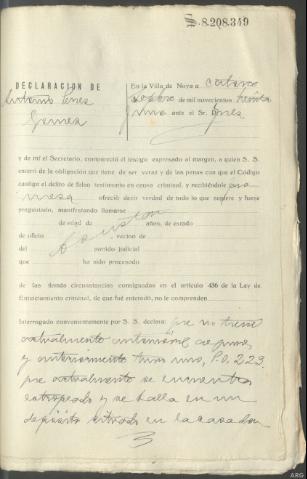 S.8.208.349
DECLARACION DE
Antonio Perez
Gomez
En la Villa de Noya a catorce
de mil novecientos treinta
y uno ante el Sr. Juez
y de mí el Secretario, compareció el testigo expresado al margen, a quien S. S.
enteró de la obligación que tiene de ser veraz y de las penas con que el Código
castiga el delito de falso testimonio en causa criminal, y recibiéndole
ofreció decir verdad de todo lo que supiere y fuere
preguntado, manifestando llamarse
de edad de años, de estado
de oficio , vecino de
del partido judicial
que ha sido procesado
de las demás circunstancias consignadas en el artículo 436 de la Ley de
Enjuiciamiento criminal, de que fué enterado, no le comprenden.
Interrogado convenientemente por S. S. declara: Que no tiene
actualmente automovil de
y anteriormente tuvo uno, P.O. 223
que actualmente se encuentra
estropeado y se halla en un
depósito situado en la casa de
ARG